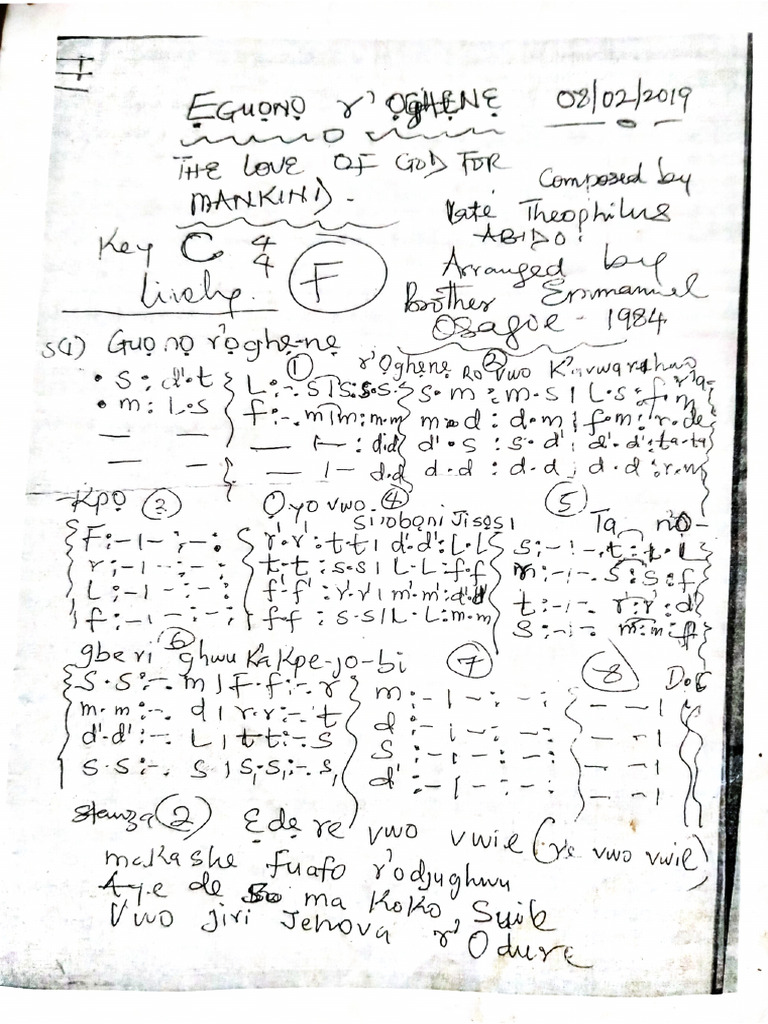 ẸGUỌNỌ r' ỌGHẸNẸ 08/02/2019
THE LOVE OF GOD FOR
MANKIND -
Composed by
Late Theophilus
ABIDO.
Key C 4/4 F
Lively.
Arranged by
Brother Emmanuel
Osagie - 1984
S(1) Guọnọ r'ọghẹnẹ
① r'Ọghẹnẹ Ro vwo ②
. s : d'.t { L : -. s | s : s.s. { s . m : m . s | L . s : f .
. m : L . s f : -. m | m : m.m m . d : d . m | f . m : r . de
— — — |- : d.d d' . s : s . d' | d' . d' : ta-ta
— — — | - d.d d . d : d . d | d . d : r . m
-Kpọ ③ Ọyọ vwo ④ ⑤ Ta nọ-
Sirobọni Jisọsi
{ f : - | - : - : r'. r' : t . t | d'. d' : L . L { s : - | - . t : t . L
r : - | - : - : t . t : s . s | L . L : f . f m : - | - . s : s . f
L : - | - : - : f'. f' : r'. r' | m'. m' : d'. d' t : - | - . r' : r' . d'
f : - | - : - : f . f : s . s | L . L : m . m s : - | - . m : m . f
gberi ⑥ ghwu Kakpe-jo-bi ⑦ ⑧ D.C
{ s . s : - . m | f . f : - . r { m : - | - : - : { — — |
m . m : - . d | r . r : - . t d : - | - : - : — — |
d'. d' : - . L | t . t : - . s s : - | - : - : — — |
s . s : - . s | s, . s, : - . s, d' : - | - : - : — — |
Stanza ② Ẹdẹ re vwo vwie (re vwo vwie)
maKashe fuafo r'odjughwu
Aye de so ma KoKo, Suie
Vwo jiri Jehova r'
Odure